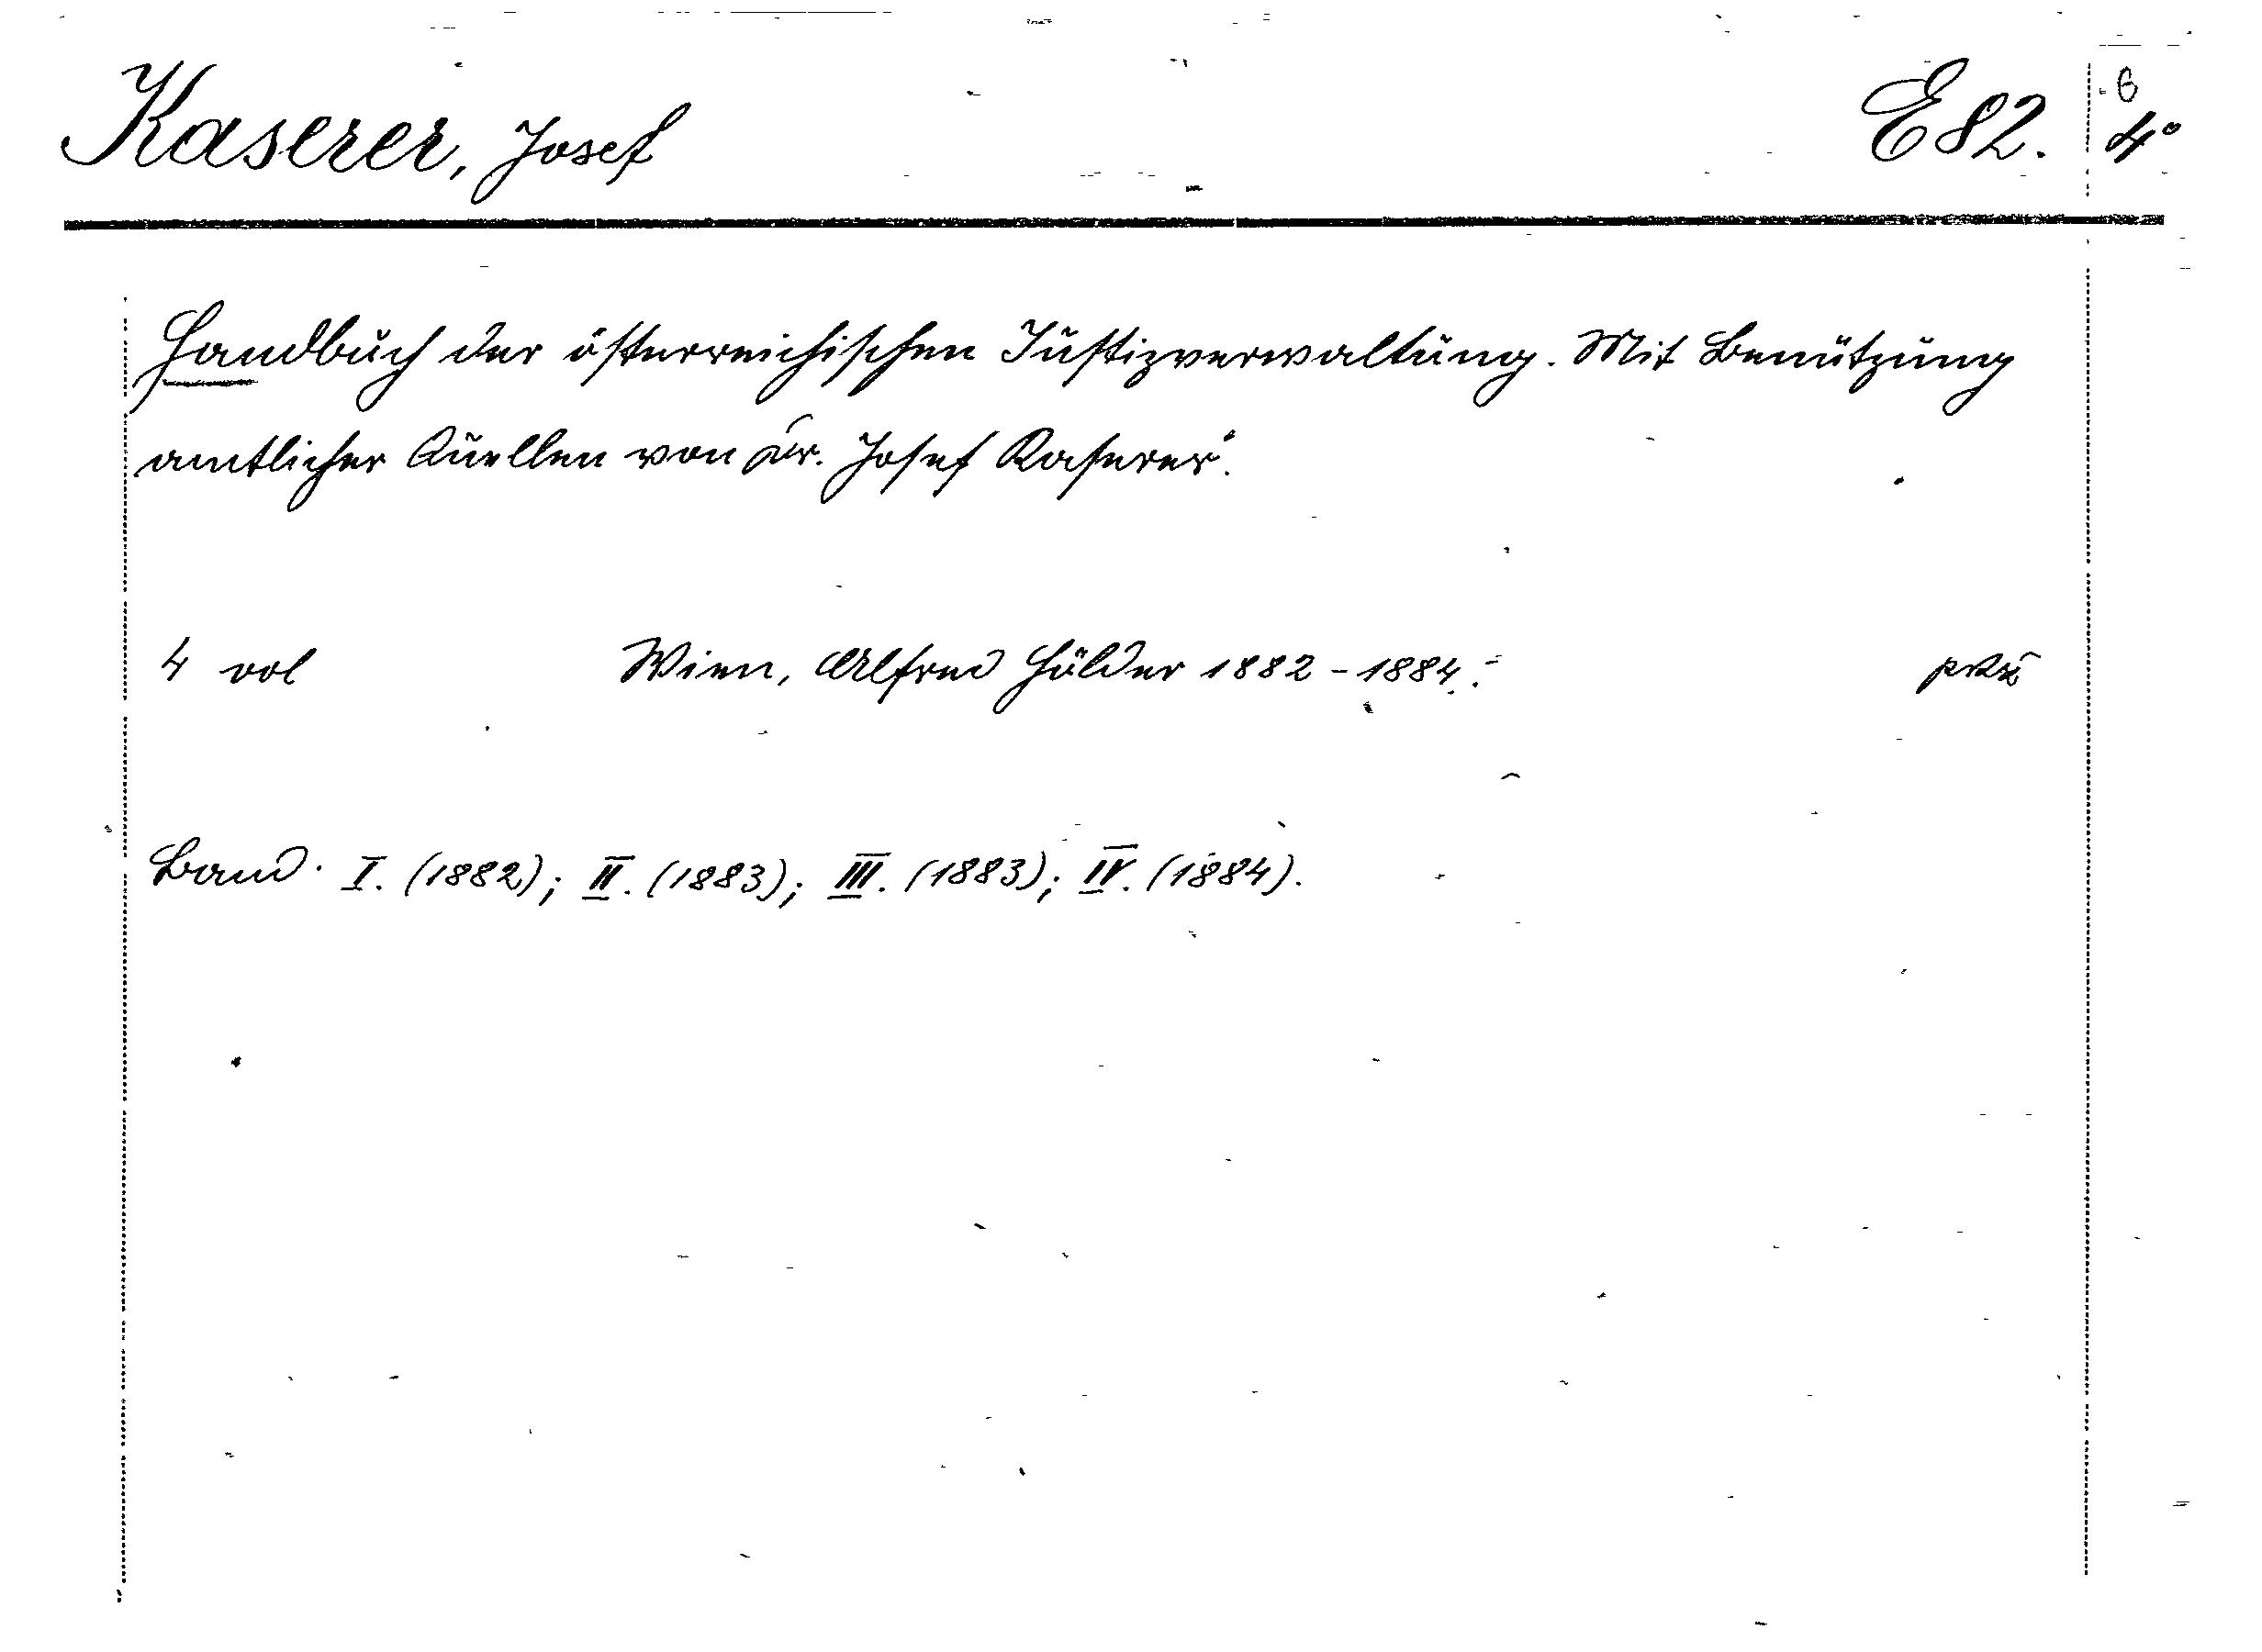 Kaserer, Josef E82. 6 4°
Handbuch der österreichischen Justizverwaltung. Mit Benützung
amtlicher Quellen von Dr. Josef Kaserer.
4 vol Wien, Alfred Hölder 1882-1884.
Band. I. (1882); II. (1883); III. (1883); IV. (1884).